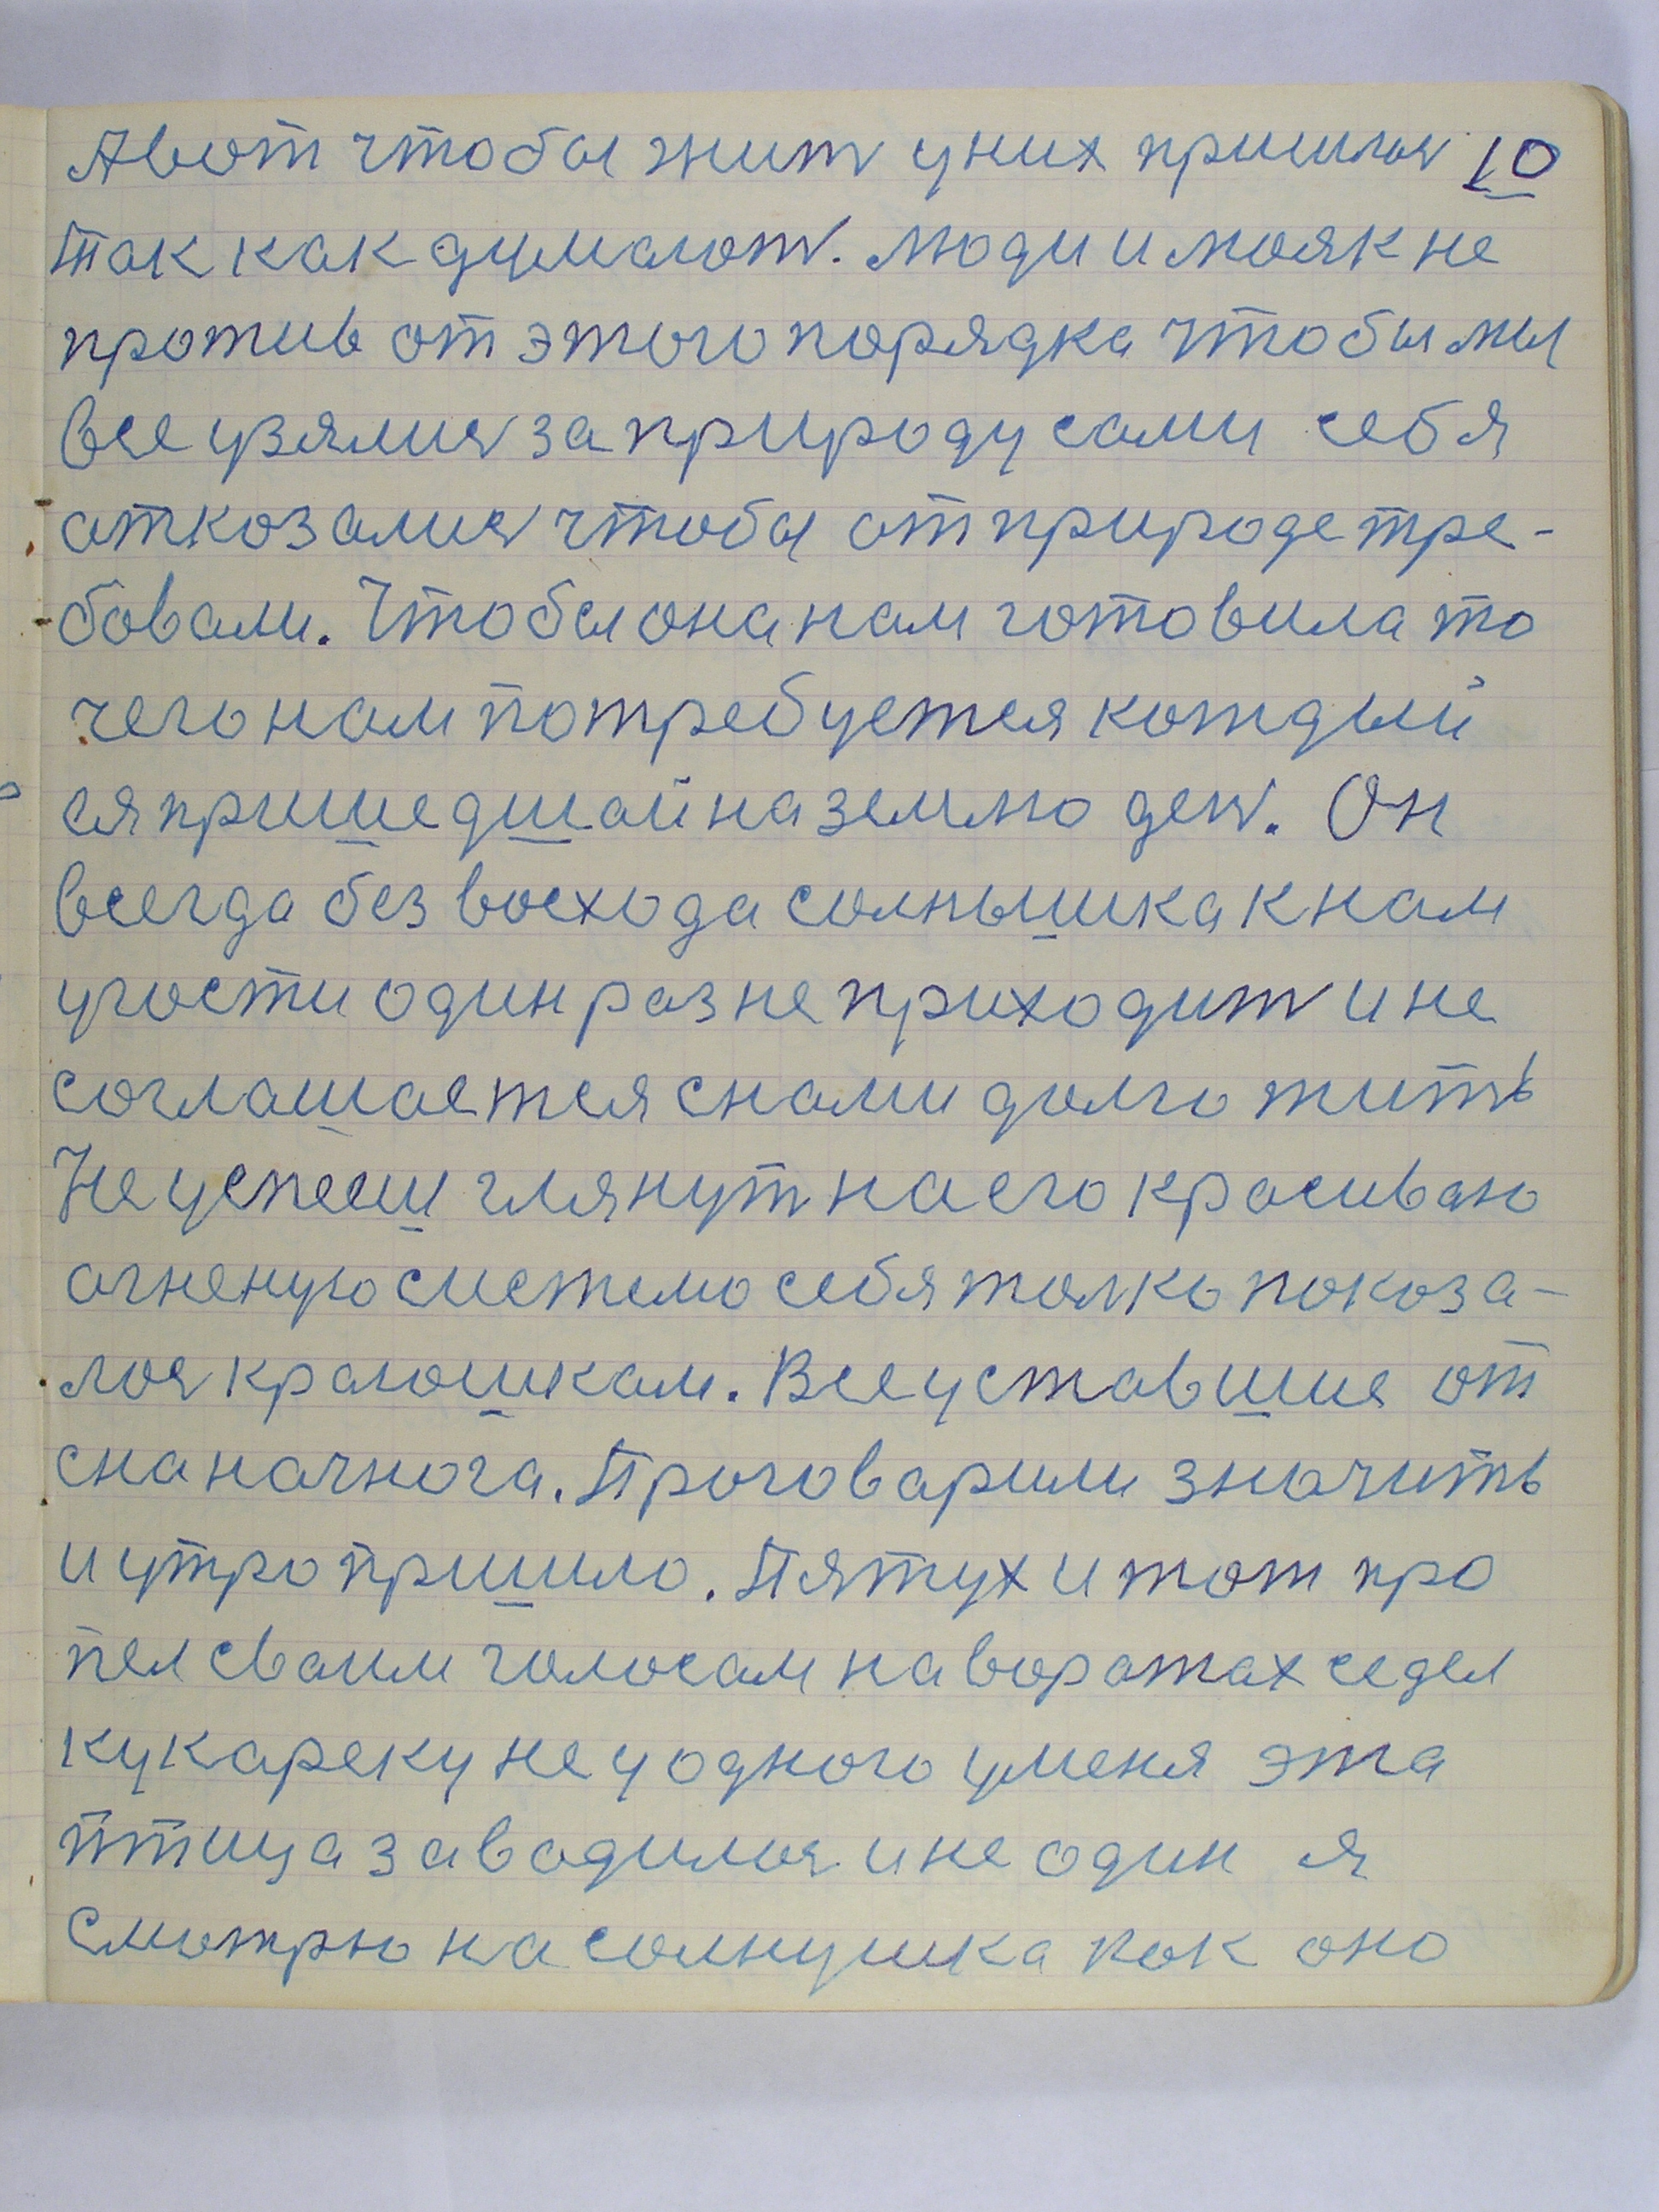 А вот чтобы жит у них пришлос 10
так как думают. Люди и мояк не
против от этого порядка чтобы мы
все узялис за природу сами себя
отказалис чтобы от природе тре-
бовали. Чтобы она нам готовила то
чего нам потребуется котдый
ся пришедшай на землю ден. Он
всегда без восхода солнышка к нам
у гости один раз не приходит и не
соглашается с нами долго жить
Не успееш глянут на его красиваю
огненую систему себя толко показа-
лос краюшкам. Все уставшие от
сна начнога. Проговарили значить
и утро пришло. Пятух и тот про
пел сваим голосам на воротах седел
кукареку не у одного у меня эта
птица заводилос и не один я
смотрю на солнушка как оно